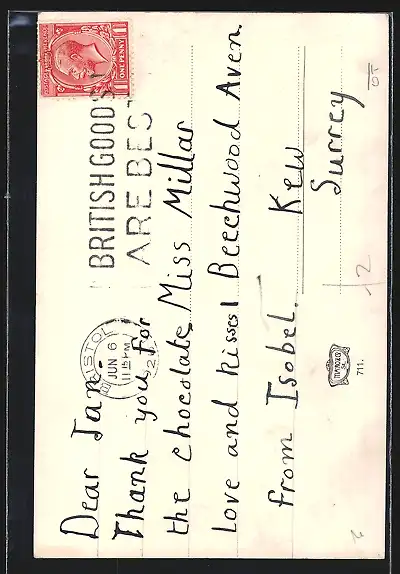 ONE PENNY
BRITISH GOODS
ARE BEST
BRISTOL
JUN 6
11 15 PM
Dear Jan.
Thank you for
the chocolate
Love and kisses
from Isobel.
Miss Millar
Beechwood Aven.
Kew
Surrey
711.
12